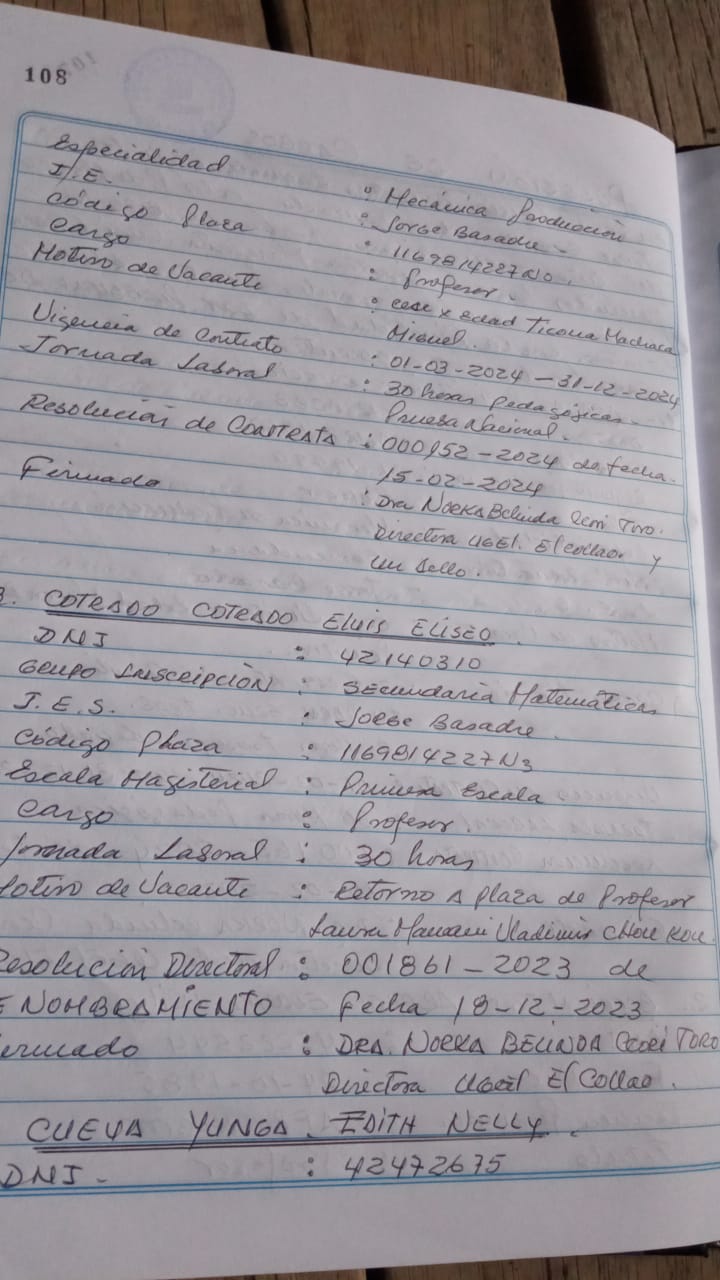 108
Especialidad : Mecánica Producción
I.E. : Jorge Basadre -
Código Plaza : 1169814227N0.
Cargo : Profesor.
Motivo de Vacante : cese x edad Ticona Machaca
Miguel.
Vigencia de Contrato : 01-03-2024 - 31-12-2024
Jornada Laboral : 30 horas pedagógicas.
Prueba Nacional.
Resolución de Contrata : 000952-2024 de fecha.
15-02-2024
Firmado : Dra Norka Belinda Ccori Toro.
Directora UGEL. El Collao y
un sello.
COTRADO COTRADO ELUIS ELISEO.
DNI : 42140310
GRUPO INSCRIPCIÓN : SECUNDARIA Matemáticas
I.E.S. : Jorge Basadre.
Código Plaza : 1169814227N3
Escala Magisterial : Primera Escala
Cargo : Profesor.
Jornada Laboral : 30 horas
Motivo de Vacante : Retorno A plaza de Profesor
Laura Mamani Vladimir
Resolución Directoral : 001861-2023 de
NOMBRAMIENTO Fecha 18-12-2023
Firmado : DRA. NORKA BELINDA Ccori TORO
Directora Ugel El Collao.
CUEVA YUNGA. EDITH NELLY.
DNI. - : 42472675